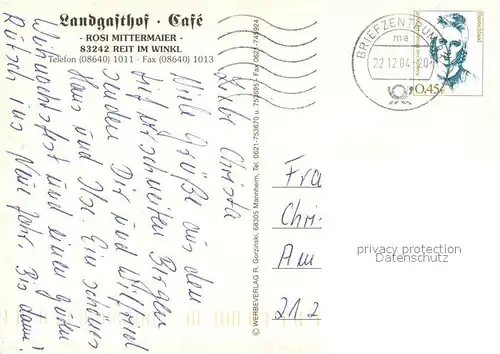 Landgasthof · Café
- ROSI MITTERMAIER -
83242 REIT IM WINKL
Telefon (08640) 1011 · Fax (08640) 1013
Liebe Christa
Viele Grüße aus den
tief verschneiten Bergen
senden Dir und Wilfried
Hans und Ilse. Ein schönes
Weihnachtsfest und einen guten
Rutsch ins Neue Jahr. Bis dann!
© WERBEVERLAG R. Gorzinski, 68305 Mannheim, Tel. 0621-753670 u. 753695 · Fax 0621-745924
BRIEFZENTRUM
ma
22.12.04-20
Deutschland
0,45€
Fra
Chri
Am
21 2
privacy protection
Datenschutz